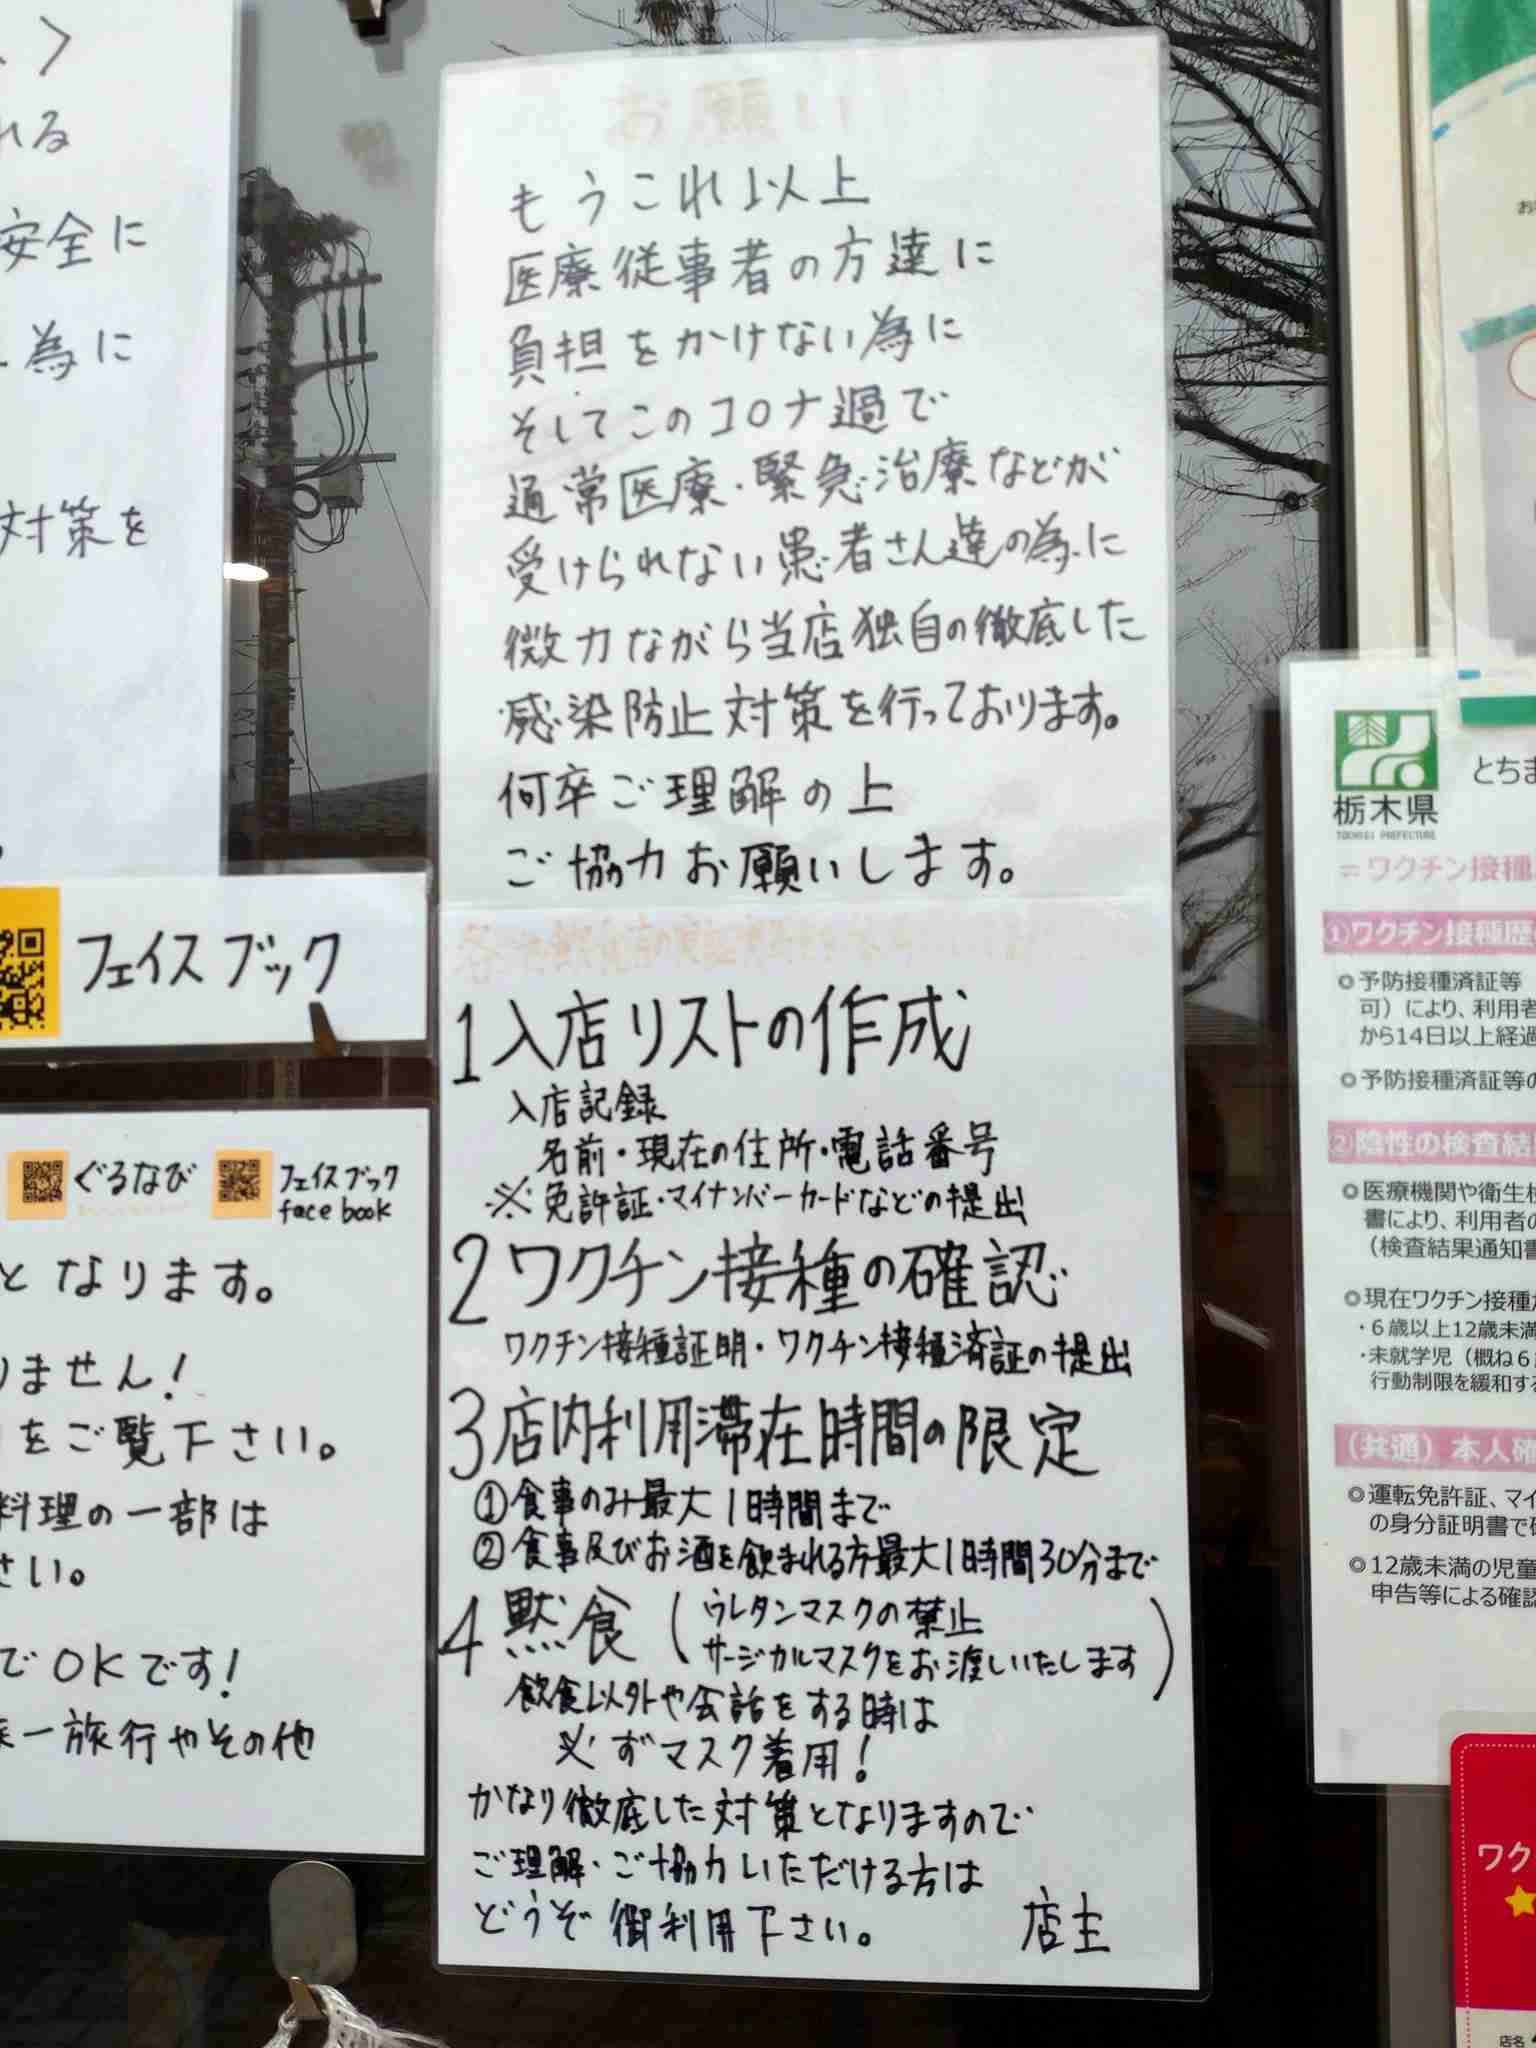 れる
安全に
為に
対策を
フェイスブック
ぐるなび
フェイスブック
face book
となります。
りません!
をご覧下さい。
料理の一部は
さい。
でOKです!
一旅行やその他
お願い
もうこれ以上
医療従事者の方達に
負担をかけない為に
そしてこのコロナ過で
通常医療・緊急治療などが
受けられない患者さん達の為に
微力ながら当店独自の徹底した
感染防止対策を行っております。
何卒ご理解の上
ご協力お願いします。
1入店リストの作成
入店記録
名前・現在の住所・電話番号
※免許証・マイナンバーカードなどの提出
2ワクチン接種の確認
ワクチン接種証明・ワクチン接種済証の提出
3店内利用滞在時間の限定
①食事のみ最大1時間まで
②食事及びお酒を飲まれる方最大1時間30分まで
4黙食(ウレタンマスクの禁止
サージカルマスクをお渡しいたします)
飲食以外や会話をする時は
必ずマスク着用!
かなり徹底した対策となりますので
ご理解・ご協力いただける方は
どうぞ御利用下さい。 店主
栃木県
TOCHIGI PREFECTURE
とちま
=ワクチン接種
①ワクチン接種歴
◎予防接種済証等
可)により、利用者
から14日以上経過
◎予防接種済証等の
②陰性の検査結
◎医療機関や衛生検
書により、利用者の
(検査結果通知書
◎現在ワクチン接種
・6歳以上12歳未満
・未就学児(概ね6
行動制限を緩和す
(共通)本人確
◎運転免許証、マイ
の身分証明書で
◎12歳未満の児童
申告等による確認
ワク
店名